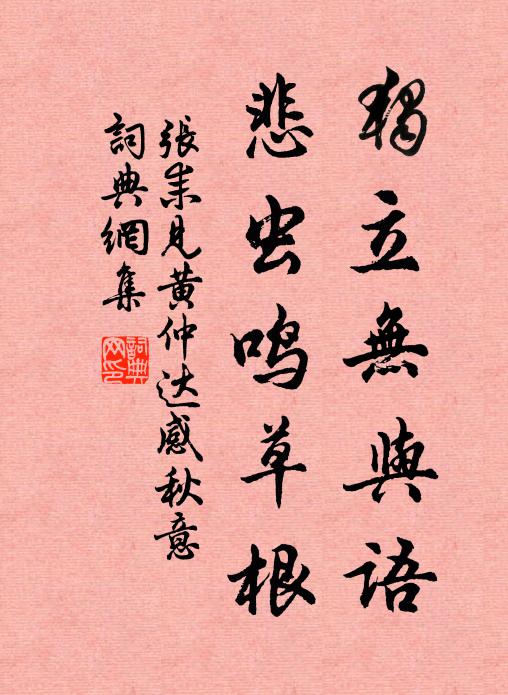 獨立無與語
悲虫鳴草根
張耒見黄仲达感秋意
詞典網集
詞典网印